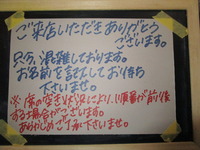 ご来店いただきありがとう
ございます。
只今、混雑しております。
お名前を記入してお待ち
下さいませ。
※席の空き状況により、順番が前後
する場合がございます。
あらかじめご了承下さいませ。